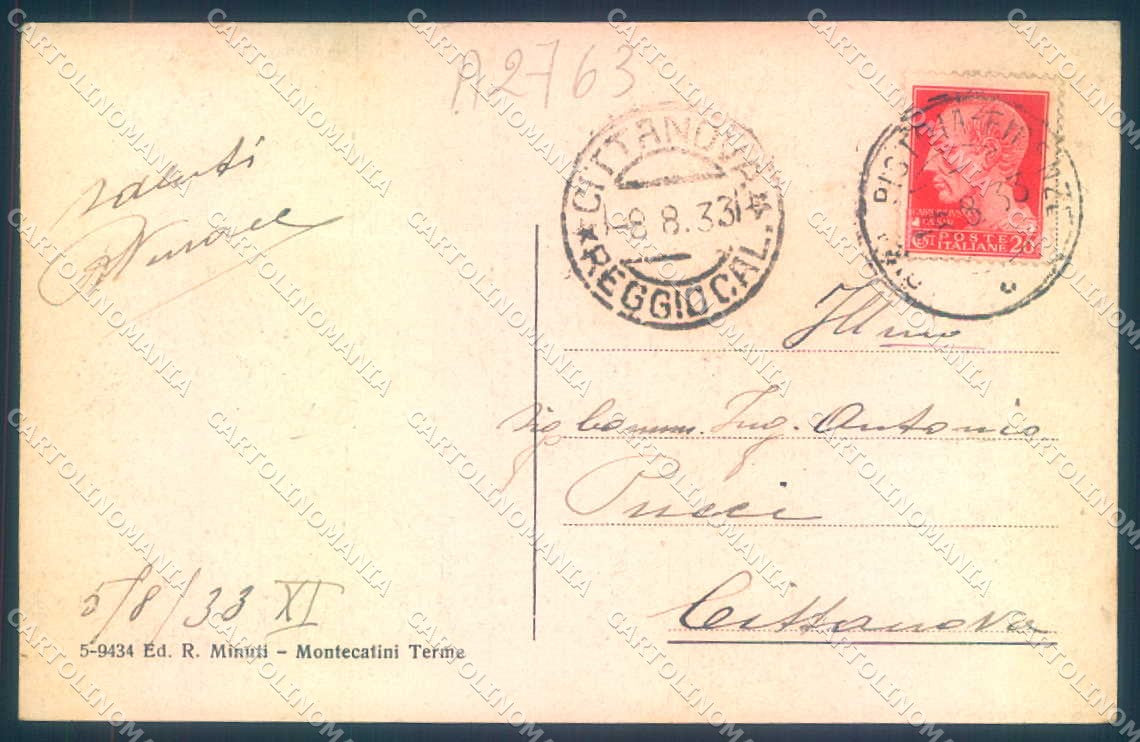 A2763
CITTANOVA
1-8 8.33
★ REGGIO CAL.
POSTE
ITALIANE 20
Illmo
Sig Comm. Ing. Antonio
Pucci
Cittanova
5/8/33 XI
5-9434 Ed. R. Minuti – Montecatini Terme
CARTOLINOMANIA